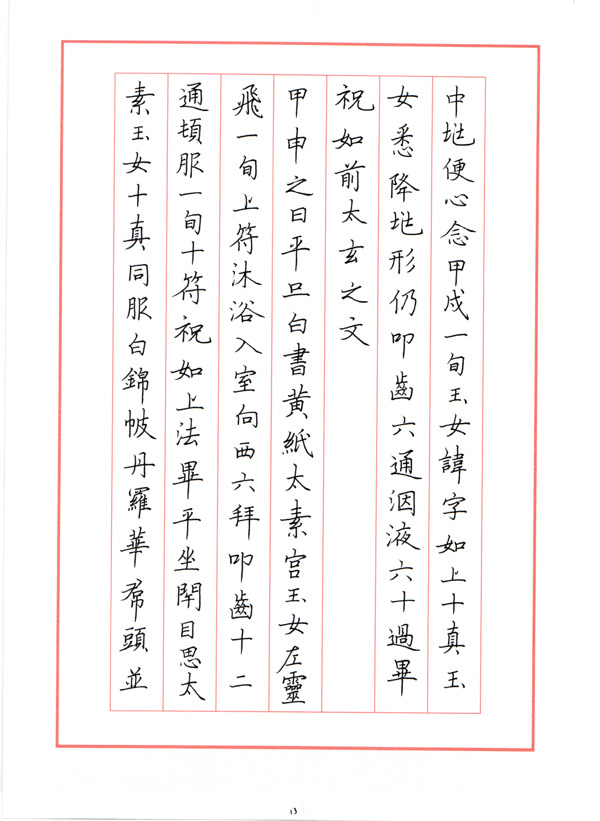 中兆便心念甲戌一旬玉女諱字如上十真玉
女悉降兆形仍叩齒六通咽液六十過畢
祝如前太玄之文
甲申之日平旦白書黃紙太素宮玉女左靈
飛一旬上符沐浴入室向西六拜叩齒十二
通頓服一旬十符祝如上法畢平坐閉目思太
素玉女十真同服白錦帔丹羅華帬頭並
13